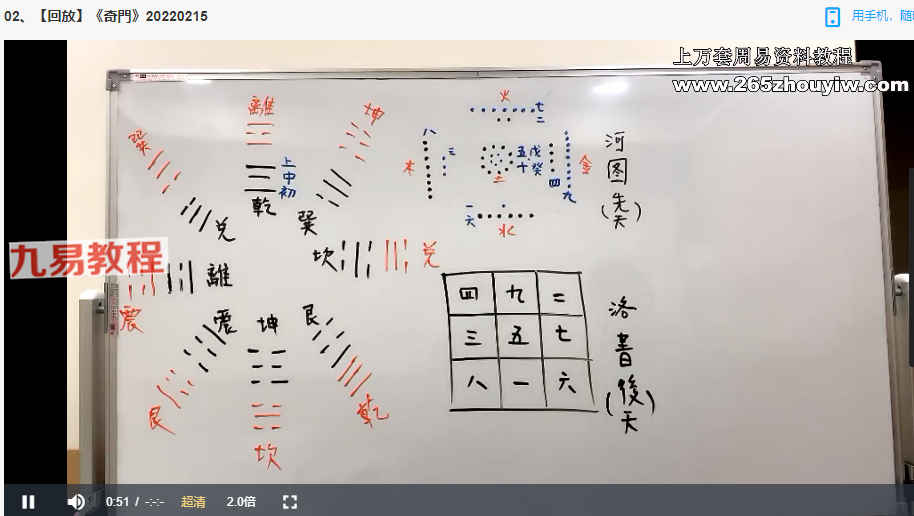 02、【回放】《奇門》20220215
用手机，随
上万套周易资料教程
www.265zhouyiw.com
九易教程
離
坤
巽
上
中
初
乾
兑
巽
離
坎
兑
震
震
坤
艮
艮
坎
乾
火
七
二
八
三
木
五
十
戊
癸
土
四
九
金
一
六
水
河
图
(先天)
四 九 二
三 五 七
八 一 六
洛
書
(後天)
0:51 / -:-:-
超清
2.0倍